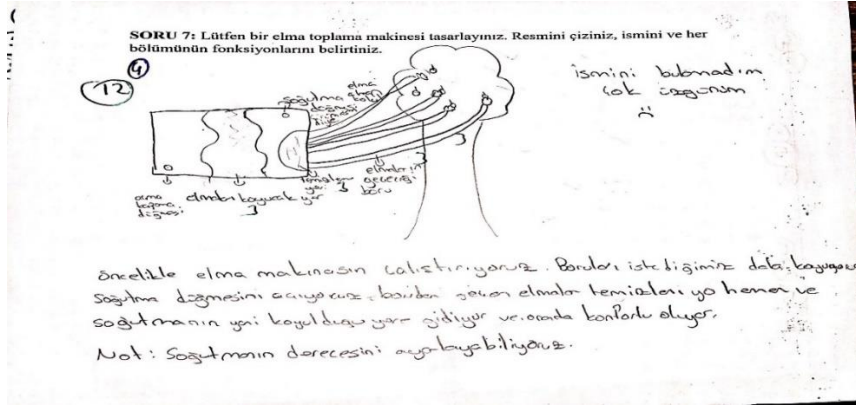 SORU 7: Lütfen bir elma toplama makinesi tasarlayınız. Resmini çiziniz, ismini ve her
bölümünün fonksiyonlarını belirtiniz.
4
12
ismini bulmadım
çok üzgünüm
elma
soğutma
düğmesi
açma
kapama
düğmesi
elmaları koyucak yer
elmaların
geçeceği
boru
öncelikle elma makinasın çalıştırıyoruz. Boruları istediğimiz dala koyuyoruz
soğutma düğmesini açıyoruz, borudan geçen elmalar temizleniyo hemen ve
soğutmanın yani koyulduğu yere gidiyor ve orada oluyor.
Not: Soğutmanın derecesini ayarlayabiliyoruz.